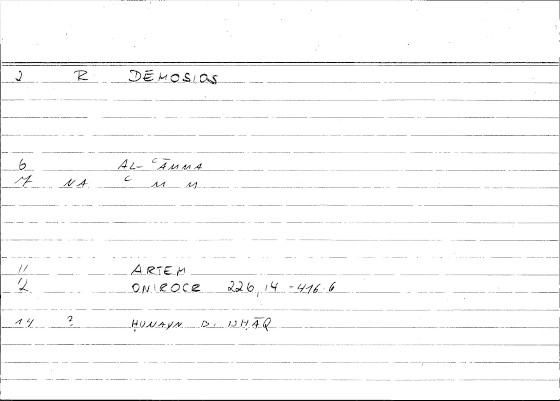 2 R DĒMOSIOS
6 AL-ʿĀMMA
7 NA ʿ M M
11 ARTEM
12 ONIROCR 226,14-416.6
14 ? ḤUNAYN B. ISḤĀQ